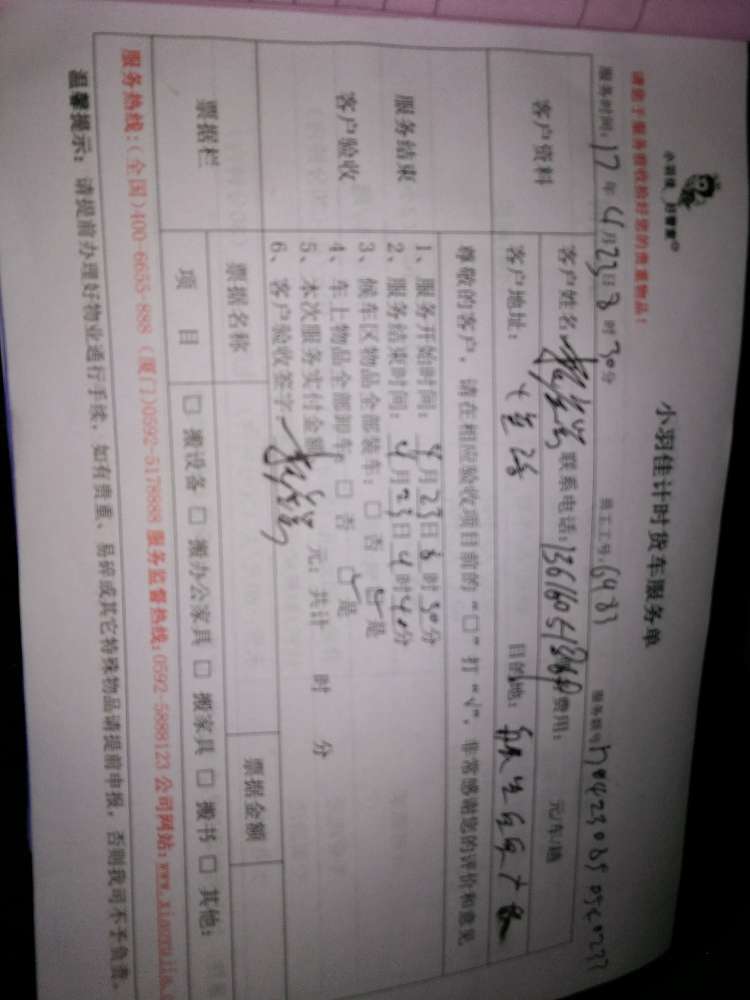 小羽佳 好管家®
小羽佳计时货车服务单
请您于服务前收拾好您的贵重物品！
服务时间：17年4月23日8时30分 员工工号：6983 服务账号：
客户资料
客户姓名： 联系电话： 费用： 元/车/趟
客户地址： 目的地：
服务结束
客户验收
尊敬的客户，请在相应验收项目前的“□”打“√”，非常感谢您的评价和意见
1、服务开始时间：4月23日8时30分
2、服务结束时间：4月23日4时40分
3、候车区物品全部装车：□否 ☑是
4、车上物品全部卸车：□否 ☑是
5、本次服务实付金额 元；共计 时 分
6、客户验收签字：
票据栏
票据名称 票据金额
项目 □搬设备 □搬办公家具 □搬家具 □搬书 □其他：
服务热线：（全国）400-6655-888（厦门）0592-5178888 服务监督热线：0592-5888123 公司网站：www.xiaoyujia.c
温馨提示：请提前办理好物业通行手续，如有贵重、易碎或其它特殊物品请提前申报，否则我司不予负责。